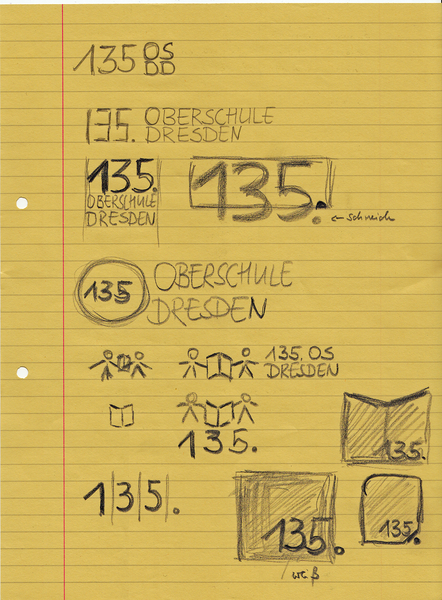 135 OS
DD
135. OBERSCHULE
DRESDEN
135.
OBERSCHULE
DRESDEN
135.
135
OBERSCHULE
DRESDEN
135. OS
DRESDEN
135.
135.
1|3|5|.
135.
135.
weiß